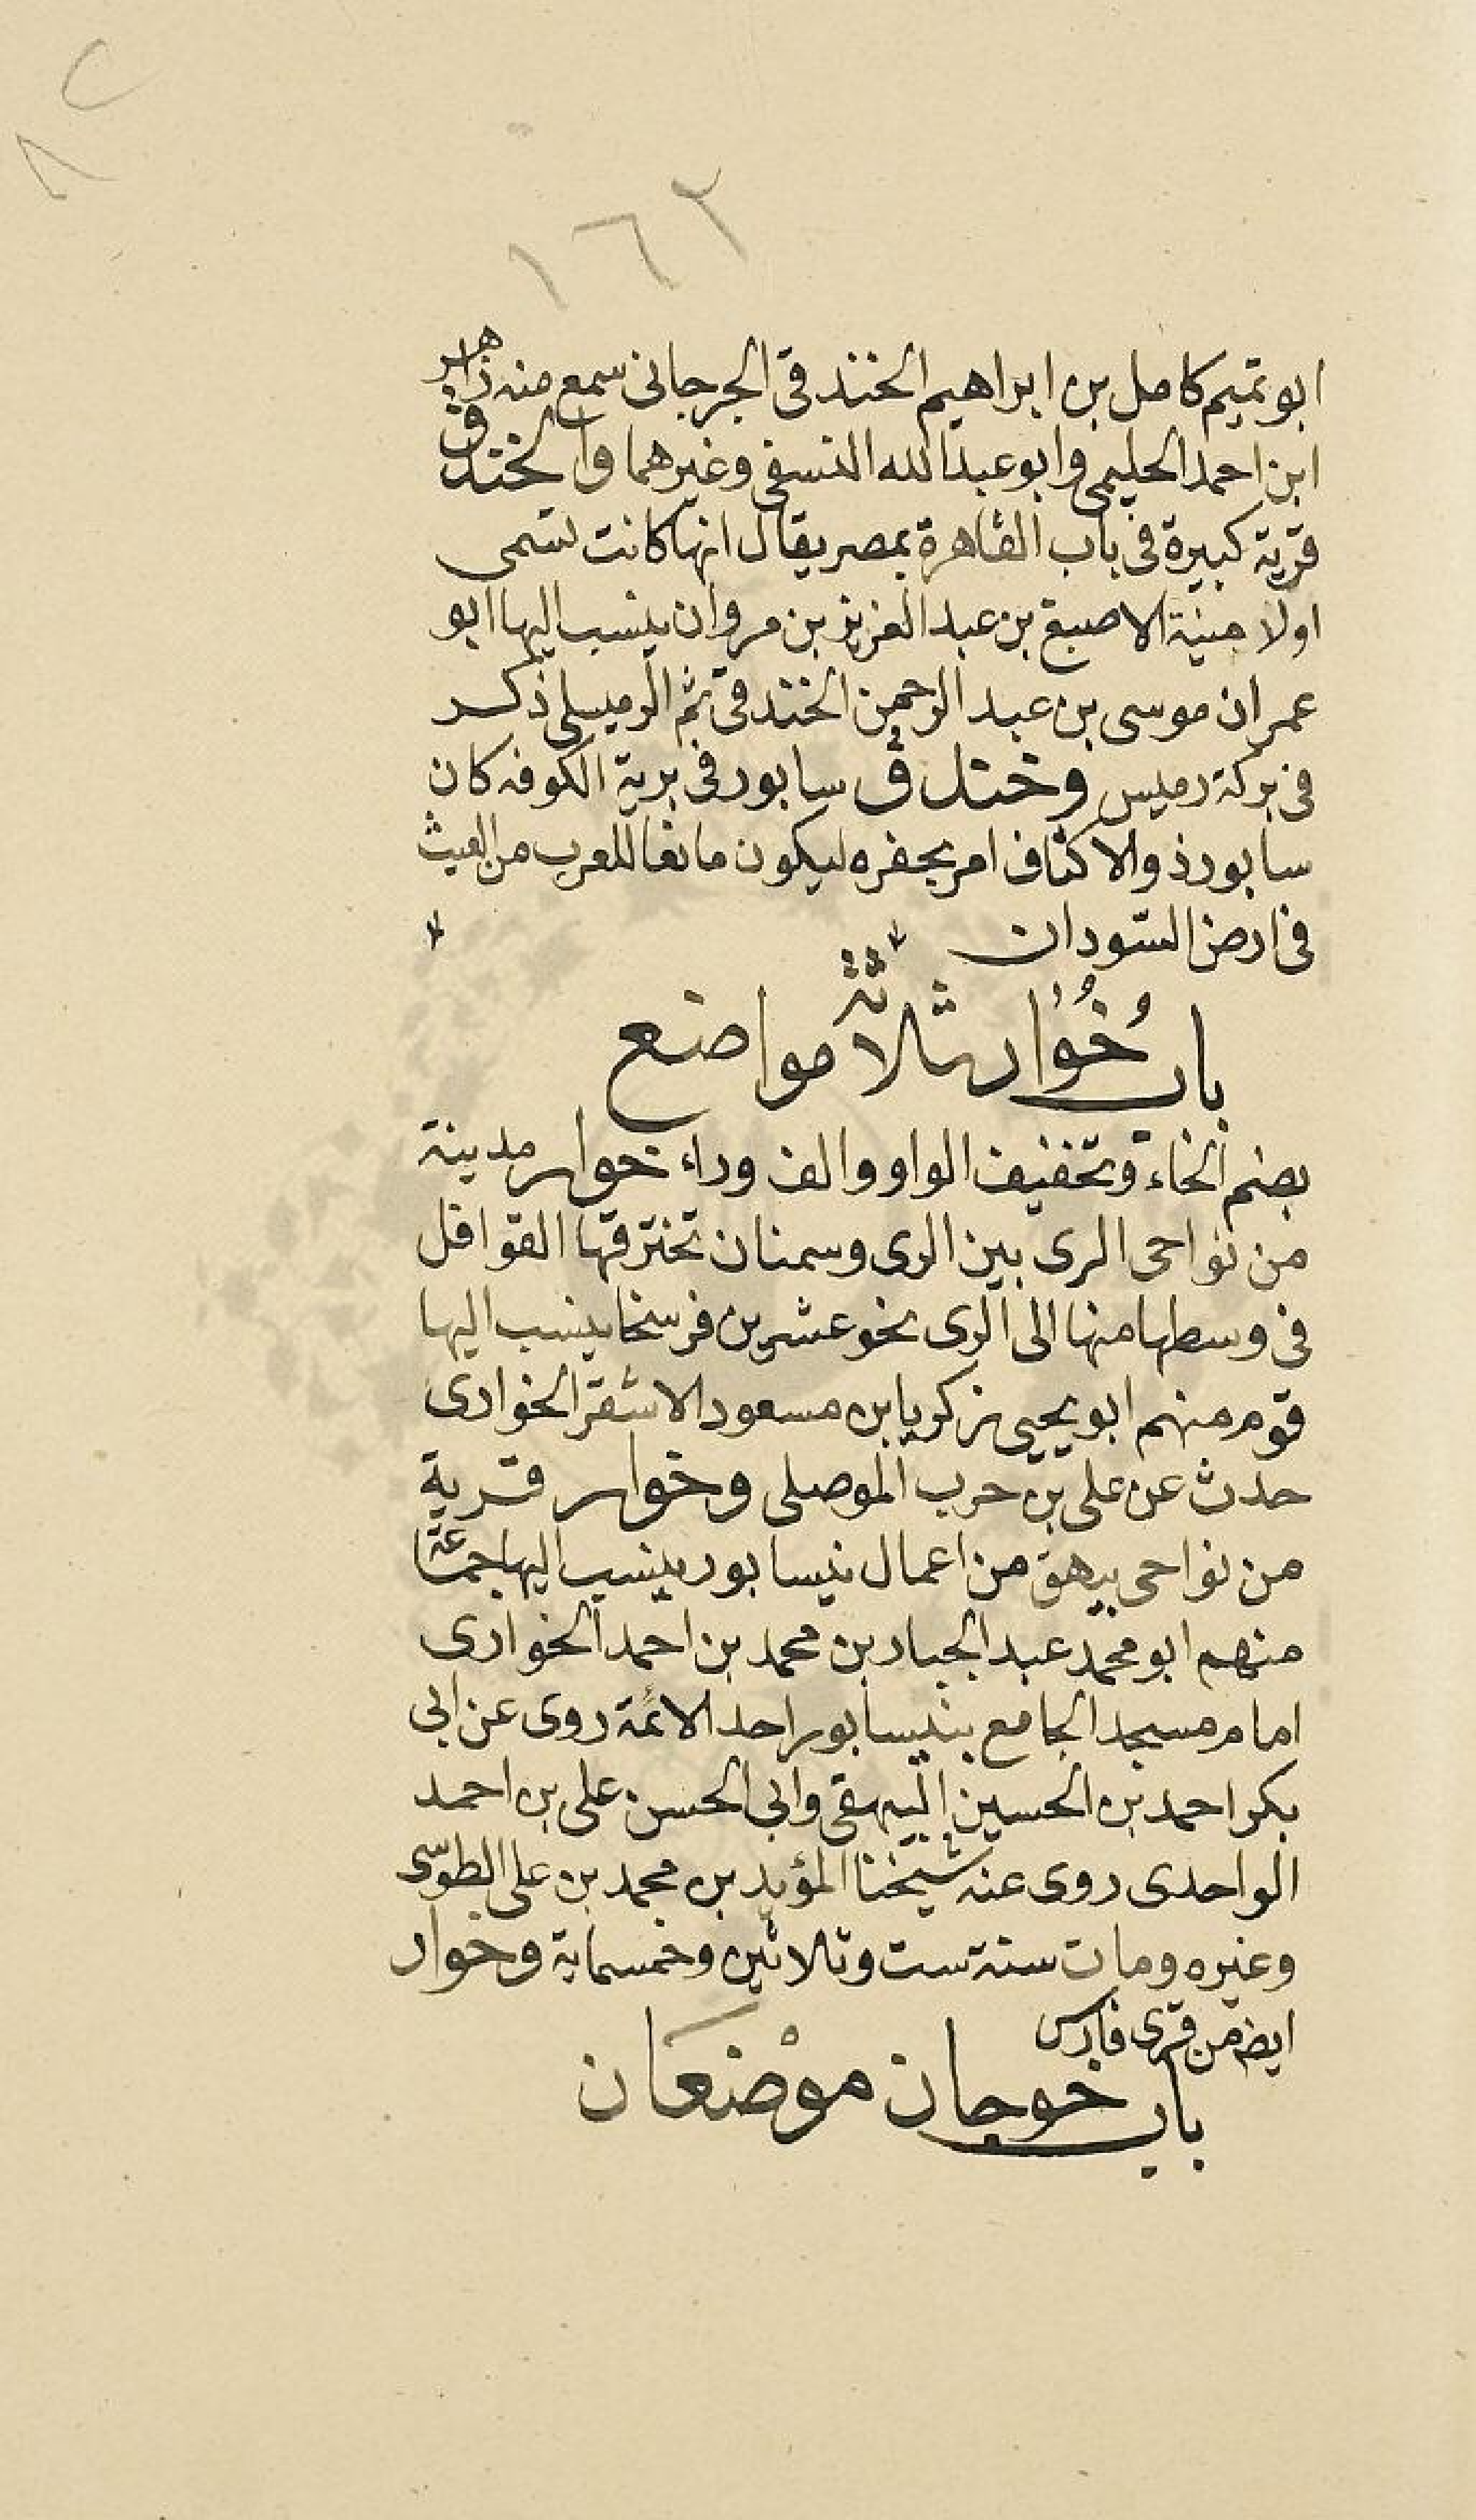 ٨٢
١٦٢
ابو تميم كامل بن ابراهيم الخندقى الجرجانى سمع منه زاهر
ابن احمد الحليمى وابو عبد الله النسفى وغيرهما والخندق
قرية كبيرة فى باب القاهرة بمصر يقال انها كانت تسمى
اولا منية الاصبغ بن عبد العزيز بن مروان ينسب اليها ابو
عمران موسى بن عبد الرحمن الخندقى ثم الرميسلى ذكر
فى بركة رميس وخندق سابور فى برية الكوفه كان
سابور ذو الاكتاف امر بحفره ليكون مانعا للعرب من العيث
فى ارض السودان
باب خُوُار ثلاثة مواضع
بضم الخاء وتخفيف الواو والف وراء خوار مدينة
من نواحى الرى بين الرى وسمنان تخترقها القوافل
فى وسطها منها الى الرى نحو عشرين فرسخا ينسب اليها
قوم منهم ابو يحيى زكريا بن مسعود الاشقر الخوارى
حدث عن على بن حرب الموصلى وخوار قرية
من نواحى بيهق من اعمال نيسابور ينسب اليها جماعة
منهم ابو محمد عبد الجبار بن محمد بن احمد الخوارى
امام مسجد الجامع بنيسابور احد الائمة روى عن ابى
بكر احمد بن الحسين البيهقى وابى الحسن على بن احمد
الواحدى روى عنه شيخنا المؤيد بن محمد بن على الطوسى
وغيره ومات سنة ست وثلاثين وخمسماية وخوار
ايضا من قرى فارس
باب خوجان موضعان